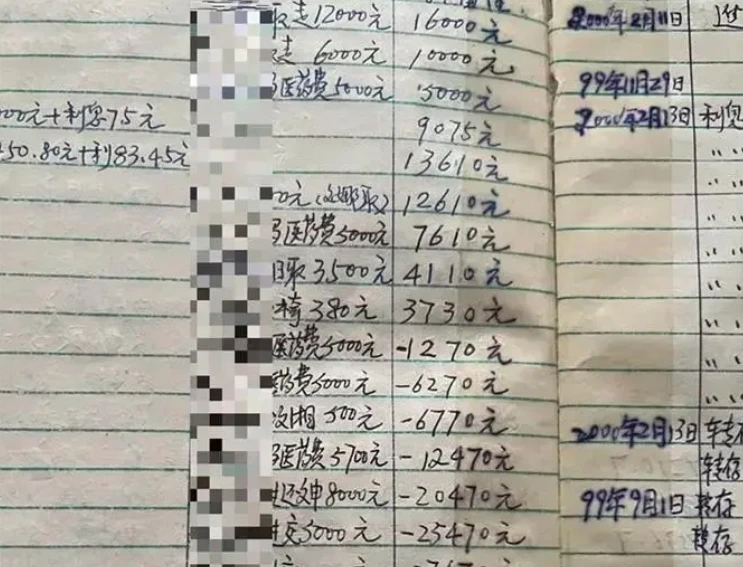 走12000元 16000元
走 6000元 10000元
医药费5000元 5000元
9075元
13610元
0元 取) 12610元
医药费5000元 7610元
取3500元 4110元
椅380元 3730元
医药费5000元 -1270元
药费5000元 -6270元
500元 -6770元
医药费5700元 -12470元
还文申8000元 -20470元
交5000元 -25470元
00元+利息75元
50.80元+利83.45元
2000年2月11日
99年11月29日
2000年2月13日 利息
〃 〃
〃 〃
〃 〃
〃 〃
〃 〃
〃 〃
〃 〃
〃 〃
2000年2月13日 转存
转存
99年9月1日 转存
转存